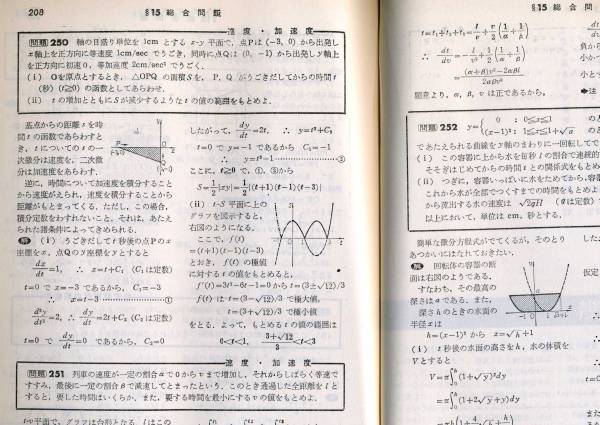 208
§15 総合問題
速度・加速度
問題250 軸の目盛り単位を 1cm とする x-y 平面で、点Pは(-3, 0)から出発し
x軸上を正方向に等速度 1cm/sec でうごき、同時に点Qは (0, -1)から出発しy軸上
を正方向に初速 0、等加速度 2cm/sec² でうごく。
(i) Oを原点とするとき、△OPQ の面積Sを、P, Q がうごきだしてからの時間 t
(秒) (t≧0) の函数としてあらわせ。
(ii) tの増加とともにSが減少するような t の値の範囲をもとめよ。
基点からの距離を時
間 t の函数であらわすと
き、t についての t の一
次微分は速度を、二次微
分は加速度をあらわす。
逆に、時間について加速度を積分すること
から速度がえられ、速度を積分することから
距離がもとまってくる。ただし、この場合、
積分定数をわすれないこと。それは、あたえ
られた諸条件によってきめられる。
解 (i) うごきだして t 秒後の点Pのx
座標をx、点Qのy座標をyとすると
dx/dt=1, ∴ x=t+C₁ (C₁は定数)
t=0 で x=-3 であるから、C₁=-3
∴ x=t-3 ①
d²y/dt²=2, ∴ dy/dt=2t+C₂ (C₂は定数)
t=0 で dy/dt=0 であるから、C₂=0
したがって、dy/dt=2t, ∴ y=t²+C₃
t=0 で y=-1 であるから C₃=-1
∴ y=t²-1
ここに、t≧0 で、①、③から
S=1/2|xy|=1/2(t+1)(t-1)(t-3)
(ii) t-S 平面に上の
グラフを図示すると、
右図のようになる。
ここで、f(t)
=(t+1)(t-1)(t-3)
とおき、f(t) の極値
に対する t の値をもとめると、
f'(t)=3t²-6t-1=0 から t=(3±√12)/3
f(t) は t=(3-√12)/3 で極大値、
t=(3+√12)/3 で極小値
をとる。よって、もとめる t の値の範囲は
0<t<1, (3+√12)/3<t<3
速度・加速度
問題251 列車の速度が一定の割合αで0からvまで増加し、それからしばらく等速で
すすみ、最後に一定の割合βで減速してとまったという。このとき通過した全距離を l と
すると、要した時間はいくらか。また、要する時間を最小にするvの値をもとめよ。
§15 総合問
t=t₁+t₂+t₃=l/v+v/2(1/α+1/β)
∴ dt/dv=-l/v²+1/2(1/α+1/β)
=((α+β)v²-2αβl)/2αβv²
題意より、α, β, v は正であるから、
問題252
y={0 : 0≦x≦1
(x-1)² : 1≦x≦1+√a
であたえられる曲線をy軸のまわりに一回転してで
(i) この容器に上から水を毎秒 l の割合で連続的
そそぎはじめてからの時間 t との関係式をもとめ
(ii) つぎに、容器いっぱいに水をためてから、容器
これから水が全部でつくすまでの時間をもとめよ
から流出する水の速度は √2gH (gは定数)
以上において、単位は cm, 秒とする。
簡単な微分方程式がでてくるが、そのとり
あつかいにはなれておきたい。
解 回転体の容器の断
面は右図のようである。
すなわち、その最高の
深さは a である。また、
深さ h のときの水面の
半径 x は
h=(x-1)² から x=√h+1
(i) t 秒後の水面の高さを h, 水の体積を
V とすると
V=π∫₀ʰ(1+√y)²dy
=π∫₀ʰ(1+2√y+y)dy